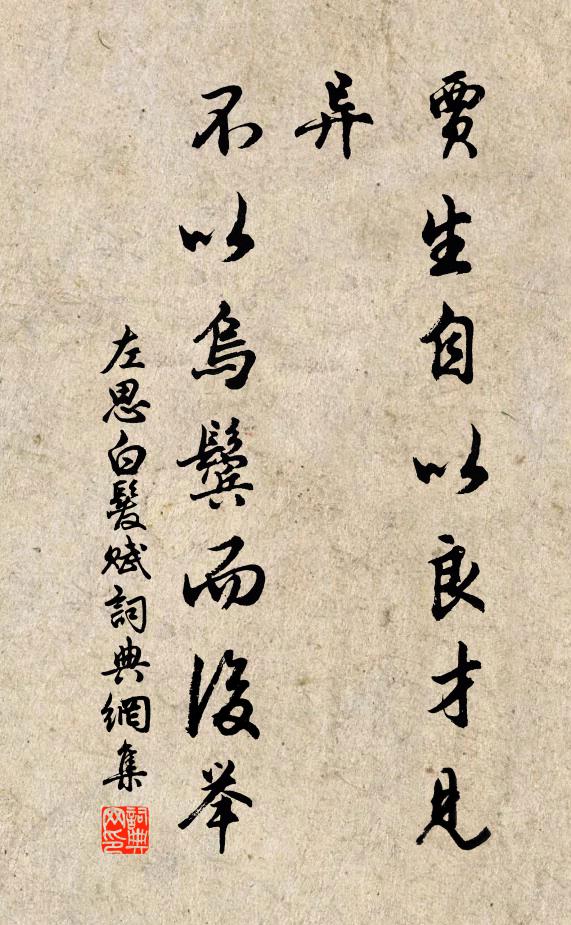 贾生自以良才见
异
不以乌鬓而後举
左思白髮赋詞典網集
詞典网印